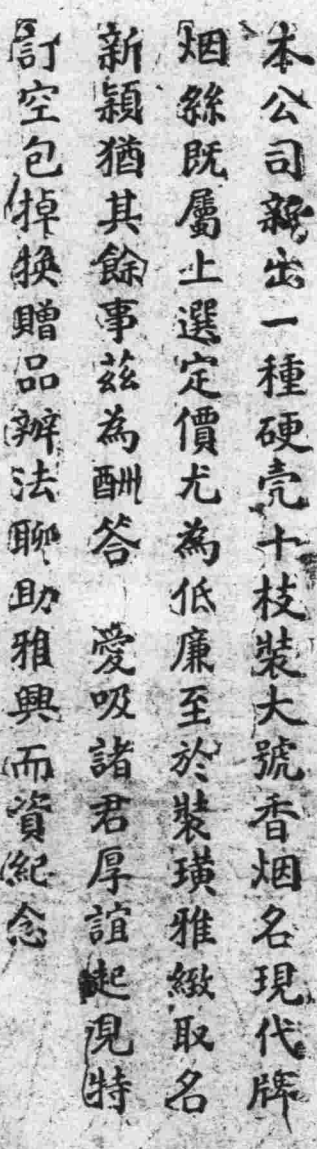 本公司新出一種硬壳十枝裝大號香烟名現代牌
烟絲既屬上選定價尤為低廉至於裝璜雅緻取名
新穎猶其餘事茲為酬答　愛吸諸君厚誼起見特
訂空包掉換贈品辦法聊助雅興而資紀念